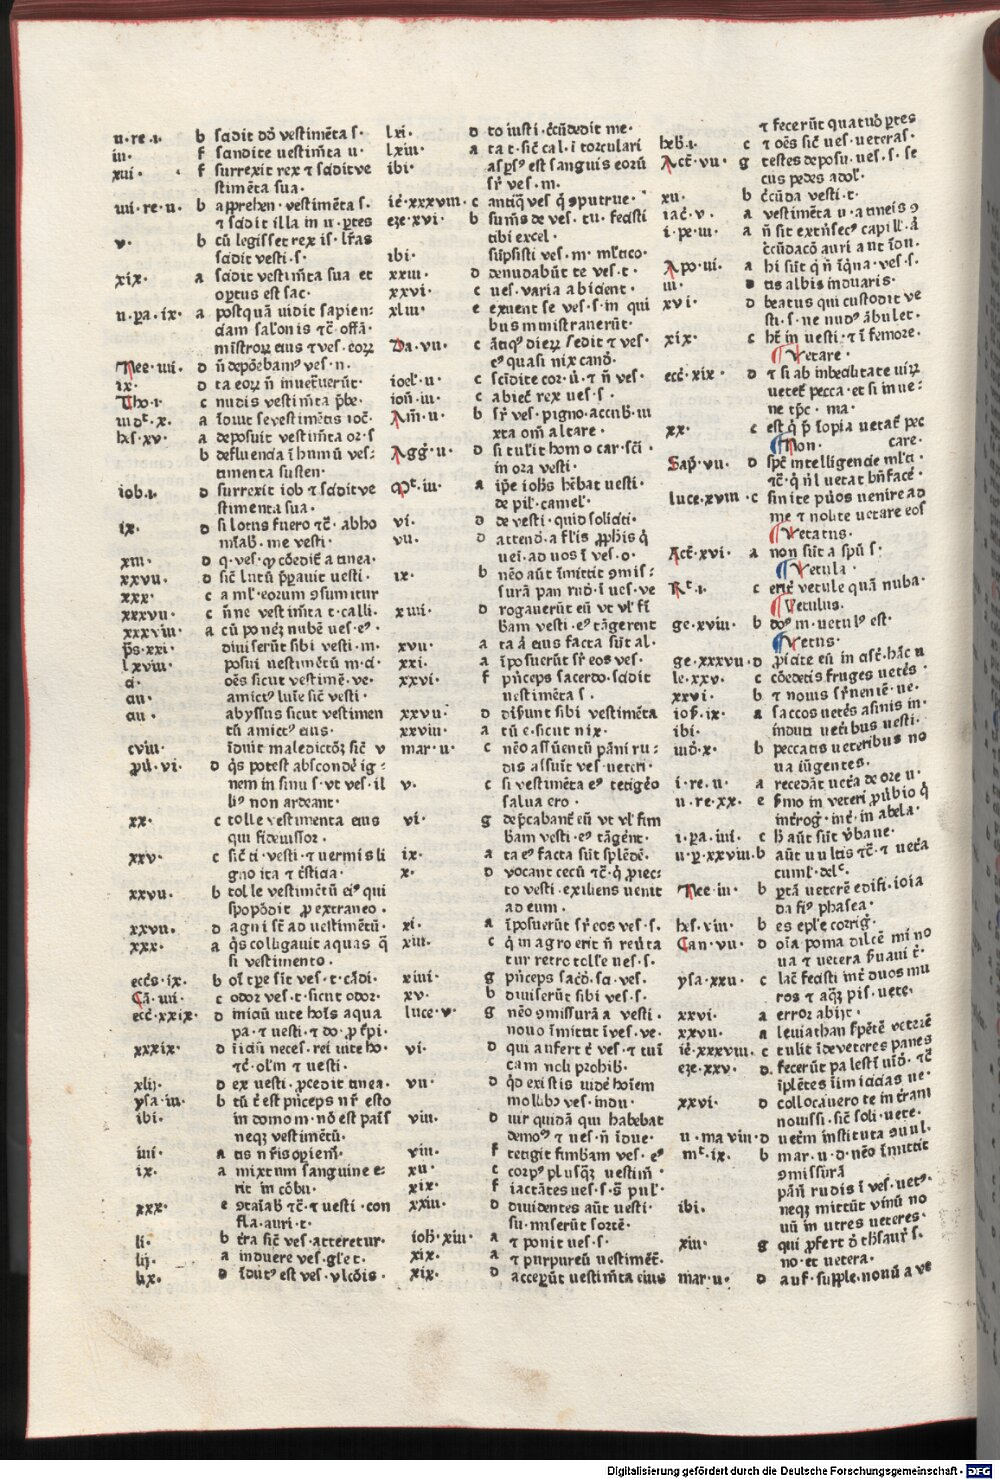 u·re·i· b scidit dō vestimēta s·
iii· f scindite uestim̄ta u·
xiii· f surrexit rex ⁊ scidit ve
stimēta sua·
iiii·re·ii· b apprehen·vestimēta s·
⁊ scidit illa in ii·ꝑtes
v· b cū legisset rex is·lr̄as
scidit vesti·s·
xix· a scidit vestim̄ta sua et
oꝑtus est sac·
ii·pa·ix· a postquā uidit sapien:
ciam salonis ⁊c̄ offā·
Nee·iiii· d n̄ depōebamꝰ ves·n·
ix· d ta eoꝝ n̄ inueteruerūt·
Tho·i· c nudis vestim̄ta p̄be·
iudͭ·x· a īduit se vestimētis ioc̄·
hs·xv· a deposuit vestim̄ta or·s
b defluencia ī humū ves:
timenta susten·
iob·i· d surrexit iob ⁊ scidit ve
stimenta sua·
ix· d si lotus fuero ⁊c̄·abho
mīab·me vesti·
xiii· d q·ves·q̄ cōedit̄ a tinea·
xxvii· d sic̄ lutū p̄pauit uesti·
xxx· c a ml·eorum ꝯsumitur
xxxvii· c n̄ne vestim̄ta t·calli·
xxxviii· a cū ponerē nubē ues·eꝰ·
p̄s·xxi· diuiserūt sibi vesti·m·
lxviii· posui uestimētū m·ci·
ci· oēs sicut vestimē·ve·
ciii· amictꝰ luīe sic̄ vesti·
ciii· abyssus sicut vestimen
tū amictꝰ eius·
cviii· īduit maledictōꝫ sic̄ v
ꝓu·vi· d q̄s potest abscondē ig:
nem in sinu s·vt ves·il
liꝰ non ardeant·
xx· c tolle vestimenta eius
qui fideiussor·
xxv· c sic̄ ti·vesti·⁊ uermis li
gno ita ⁊ t̄sticia·
xxvii· b tolle vestimētū eiꝰ qui
spopōdit ꝓ extraneo·
xxvii· d agni sc̄ ad uestimētū·
xxx· a q̄s colligauit aquas q̄
si vestimento·
eccs·ix· b oī tꝑe sīt ves·t·cādi·
Cā·iiii· c odor ves·t·sicut odor·
ecc̄·xxix· d iniciū uite hoīs aqua
pa·⁊ uesti·⁊ do·
xxxix· d īiciū neces·rei uite ho·
⁊c̄·olm̄ ⁊ uesti·
xlii· d ex uesti·ꝓcedit tinea·
ysa·iii· b tū t̄ est pn̄ceps nr̄ esto
ibi· in domo m·nō est paīs
neqꝫ vestimētū·
iiii· a
ix· a mixtum sanguine e:
rit in cōbu·
xxx· e ꝯtaīab ⁊c̄·⁊ uesti·con
fla·auri·t·
li· b t̄ra sic̄ ves·atteretur·
lii· a induere ves·gle t·
lix· d īdutꝰ est ves·vlcōis·
lxi· d to iusti·c̄cūdedit me·
lxiii· a ta t·sic̄ cal·ī torculari
ibi· aspsꝰ est sanguis eorū
sr̄ ves·m·
ie·xxxviii· c antiq̄ ves q̄ ꝯputrue·
eze·xvi· b sum̄s de ves·tu·fecisti
tibi excel·
ibi· sūpsisti ves·m·mltico·
xxiii· d denudabūt te ves·t·
xxvi· c ues·varia abicient·
xliii· e exuent se ves·s·in qui
bus ministrauerūt·
Da·vii· c ātiqꝰ dierꝫ sedit ⁊ ves·
eꝰ quasi nix cand·
ioel·ii· c scīdite cor·ū·⁊ n̄ ves·
ion·iii· c abiec̄ rex ues·s·
Am·ii· b sr̄ ves·pigno·accub·iu
xta om̄ altare·
Agg·ii· d si tulit homo car·sc̄i·
in ora vesti·
Mͭ·iii· a ip̄e ioh̄s hēbat uesti·
de pil·camel·
vi· d de vesti·quid soliciti·
vii· d attend·a fl̄is ꝓphis q̄
uei·ad uos ī ves·o·
ix· b nēo aūt īmittit ꝯmis:
surā pan rud·ī ues·ve
xiiii· d rogauerūt eū vt vl fī
b̄am vesti·eꝰ tāgerent
xvii· a ta ā eius facta sūt al·
xxi· a īposuerūt sr̄ eos ves·
xxvi· f pn̄ceps sacerdo·scidit
uestimēta s·
xxvii· d diūunt sibi vestimēta
xxviii· a tū e·sicut nix·
mar·ii· c nēo assūentū pāni ru:
dis assuīt ves·ueteri·
v· c si vestimēta eꝰ tetigēo
salua ero·
vi· g dep̄cabant̄ eū vt vl fim
b̄am vesti·eꝰ tāgent·
ix· a ta eꝰ facta sūt splēdē·
x· d vocant cecū ⁊c̄·q̄ ꝓiec:
to vesti·exiliens uenit
ad eum·
xi· a īposuerūt sr̄ eos ves·s·
xiii· c q̄ in agro erit n̄ reūta
tur retro tolle ues·s·
xiiii· g pn̄ceps sacdo·sci·ves·
xv· b diuiserūt sibi ves·s·
luce·v· g nēo ꝯmissurā a vesti·
nouo īmittit ī ves·ve·
vi· d qui aufert t̄ ves·⁊ tuī
cam noli prohib·
vii· d q̄d existis uide hoīem
mollibꝰ ves·indu·
viii· d uir quidā qui habebat
demoꝰ ⁊ ues·n̄ īdue·
viii· f tetigit fimbam ves·eꝰ
xii· c corpꝰ plusqꝫ uestim̄·
xix· f iactātes ues·s·s̄ pul·
xxiii· d diuidentes aūt uesti·
su·miserūt sortē·
ioh·xiii· a ⁊ ponit ues·s·
xix· a ⁊ purpureū uestimēt·
xix· d acceꝑūt uestim̄ta eius
⁊ fecerūt quatuoꝛ ꝑtes
heb·i· c ⁊ oēs sic̄ ues·ueteras·
Act·vii· g testes deposu·ues·s·se
cus pedes adol·
xii· b c̄cūda vesti·t·
iac·v· a vestimēta u·a tineis ꝯ
i·pe·iii· a n̄ sit extn̄secꝰ capill·ā
c̄cūdacō auri aut īdu·
Apo·iii· a hi sūt q̄ n̄ īqīna·ves·s·
iii· d tis albis induaris·
xvi· d beatus qui custodit ve
sti·s·ne nudꝰ ābulet·
xix· c ht̄ in uesti·⁊ ī femore·
Vetare·
ecc̄·xix· d ⁊ si ab inbecilitate uiꝝ
uetet̄ pecca·et si inue:
ne tp̄c·ma·
xx· c est q̄ p̄ īopia uetat̄ pec
Non· care·
Sap·vii· d spē intelligencie ml̄ti·
⁊c̄·q̄ nl uetat bn̄facē·
luce·xviii· c sinite pu̇os uenire ad
me ⁊ nolite uetare eos
Vetatus·
Act·xvi· a non sūt a spū s·
Vetula·
Rͭ·i· c erit̄ vetule quā nuba·
Vetulus·
ge·xviii· b doꝰ m·uetulꝰ est·
Vetus·
ge·xxxvii· d ꝓicite eū in cist̄·hāc u
le·xxv· c cōedetis fruges uetēs·
xxvi· b ⁊ nouis sr̄ueniē·ue·
ios·ix· a saccos uetēs asinis in·
ibi· induti uetibus uesti·
iud·x· b peccatis ueteribus no
ua iūgentes·
i·re·ii· a recedāt uetera de ore u·
ii·re·xx· e ẜmo in veteri ꝓubio q̄
int̄rog·int̄·in abela·
i·pa·iiii· c h̄ aūt sūt v̄ba ue·
ii·p·xxviii· b aūt uultis ⁊c̄·⁊ uet̄a
cuml·dele·
Nee·iii· b portā ueterē edifi·ioia
da fiꝰ phasea·
hs·viii· b es eple corrig·
Can·vii· d oīa poma dilcē mi no
ua ⁊ uetera ẜuaui t̄·
ysa·xxii· c lacū fecisti int̄ duos mu
ros ⁊ aqꝫ pis·uete·
xxvi· a error abiit·
xxvii· a leuiathan ẜpētē veterē
ie·xxxviii· c tulit īde veteres panes
eze·xxv· d fecerūt palestī uīd·⁊c̄
īplētes īimicicias ue·
xxvi· d collocauero te in t̄rani
nouissi·sic̄ soli·uete·
ii·ma·viii· d uet̄m instituta ꝯuul·
mͭ·ix· b mar·ii·d·nēo īmittit
ꝯmissurā
pān̄ rudis ī ves·uetꝰ·
ibi· neqꝫ mittūt vinū no
uū in utres ueteres·
xiii· g qui ꝓfert d̄ th̄saur̄ s·
no·et uetera·
mar·ii· d auf·supple·nouū a ve
Digitalisierung gefördert durch die Deutsche Forschungsgemeinschaft - DFG